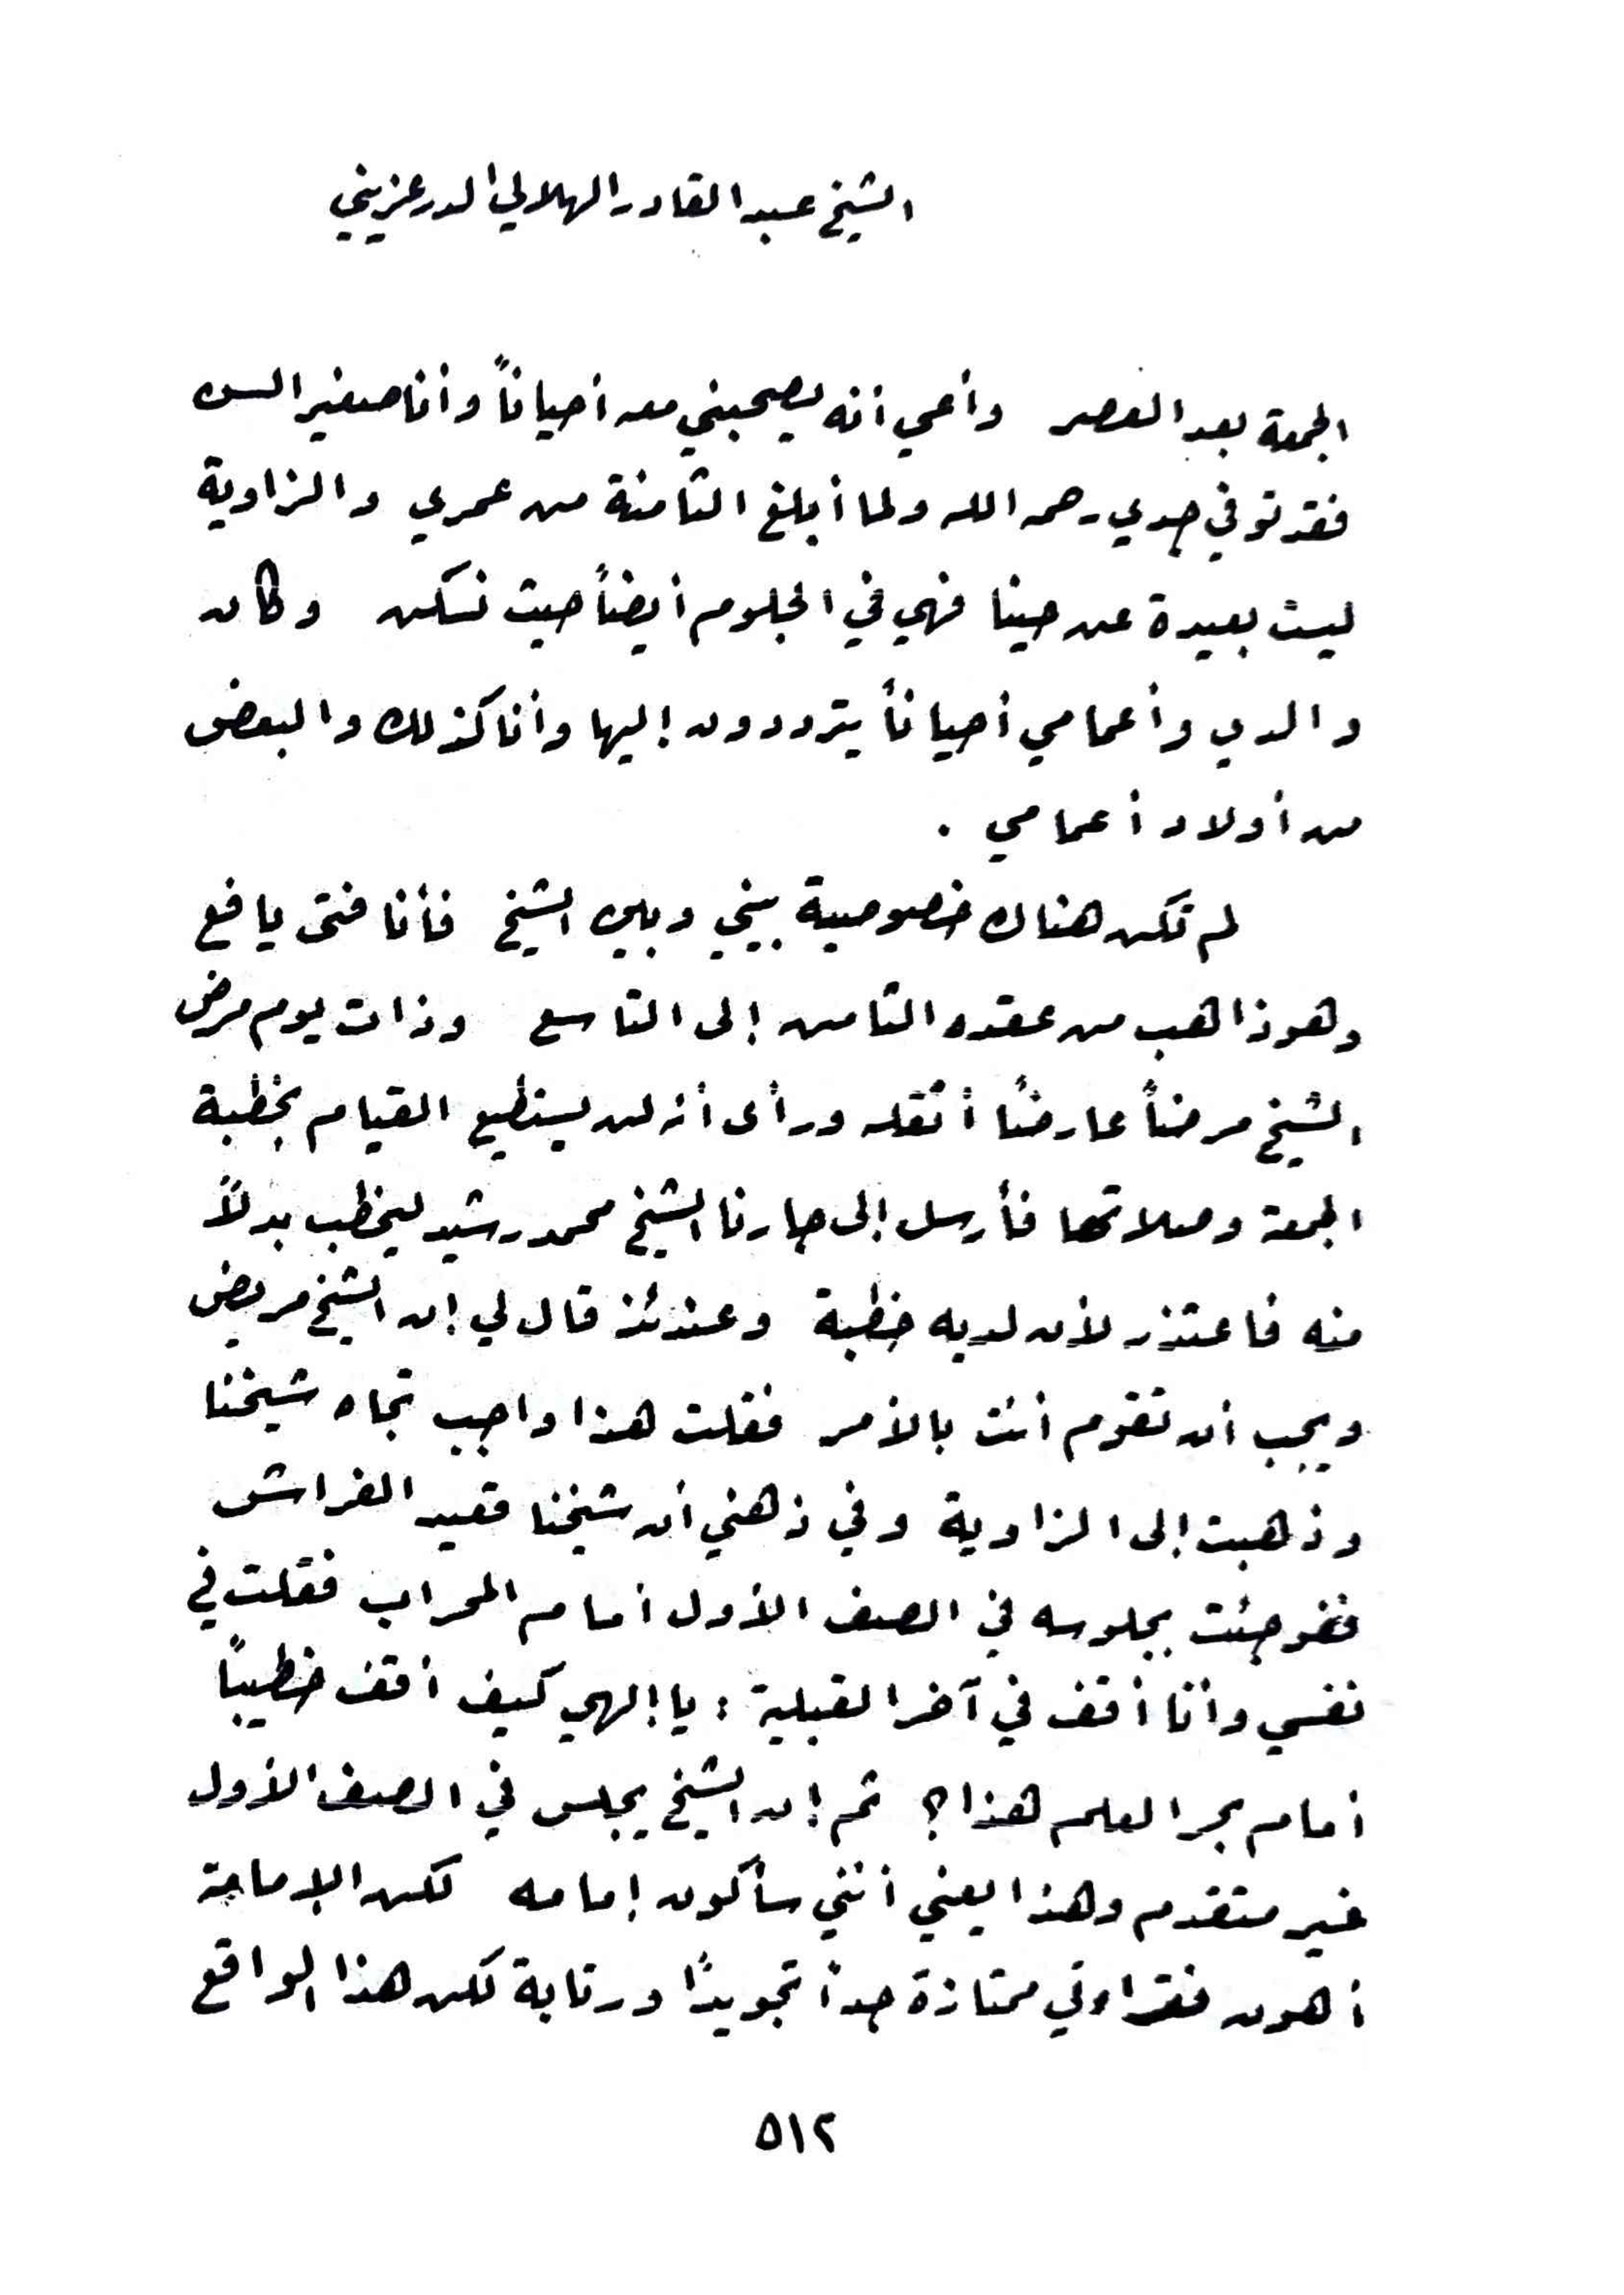 الشيخ عبد القادر الهلالي الدرعزيني
الجمعة بعد العصر وأعي أنه يصحبني معه أحياناً وأنا صغير السن
فقد توفي جدي رحمه الله ولما أبلغ الثامنة من عمري والزاوية
ليست بعيدة عن حينا فهي في الجلوم أيضاً حيث نسكن وكان
والدي وأعمامي أحياناً يترددون إليها وأنا كذلك والبعض
من أولاد أعمامي .
لم تكن هناك خصوصية بيني وبين الشيخ فأنا فتى يافع
وهو ذاهب من عقده الثامن إلى التاسع وذات يوم مرض
الشيخ مرضاً عارضاً أثقله ورأى أنه لن يستطيع القيام بخطبة
الجمعة وصلاتها فأرسل إلى جارنا الشيخ محمد رشيد ليخطب بدلاً
منه فاعتذر لأن لديه خطبة وعندئذ قال لي إن الشيخ مريض
ويجب أن تقوم أنت بالأمر فقلت هذا واجب تجاه شيخنا
وذهبت إلى الزاوية وفي ذهني أن شيخنا قعيد الفراش
ففوجئت بجلوسه في الصف الأول أمام المحراب فقلت في
نفسي وأنا أقف في آخر القبلية : يا إلهي كيف أقف خطيباً
أمام بحر العلم هذا؟ ثم إن الشيخ يجلس في الصف الأول
غير متقدم وهذا يعني أنني سأكون إمامه لكن الإمامة
أهون فقراءتي ممتازة جداً تجويداً ورتابة لكن هذا الواقع
٥١٢